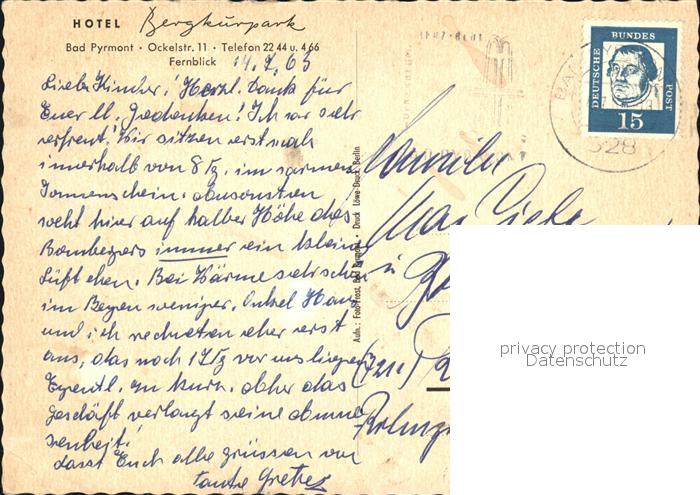 HOTEL Bergkurpark
Bad Pyrmont · Ockelstr. 11 · Telefon 22 44 u. 4 66
Fernblick
14.7.63
Liebe Kinder! Herzl. Dank für
Euer ll. Gedenken! Ich war sehr
erfreut. Wir sitzen erstmals
innerhalb von 8 Tg. im warmen
Sonnenschein. Ansonsten
weht hier auf halber Höhe des
Bombergers immer ein klein
Lüftchen. Bei Wärme sehr schön
im Regen weniger. Onkel Hans
und ich rechneten eher erst
aus, das noch 17 Tg vor uns liegen
Eigentl. zu kurz. Aber das
Geschäft verlangt seine Anwe
senheit!
Lasst Euch alle grüssen von
Tante Gretel
Aufn.: Foto-Frost, Bad Pyrmont · Druck Löwe-Druck, Berlin
Familie
Max
in
DEUTSCHE BUNDES POST
15
328
privacy protection
Datenschutz